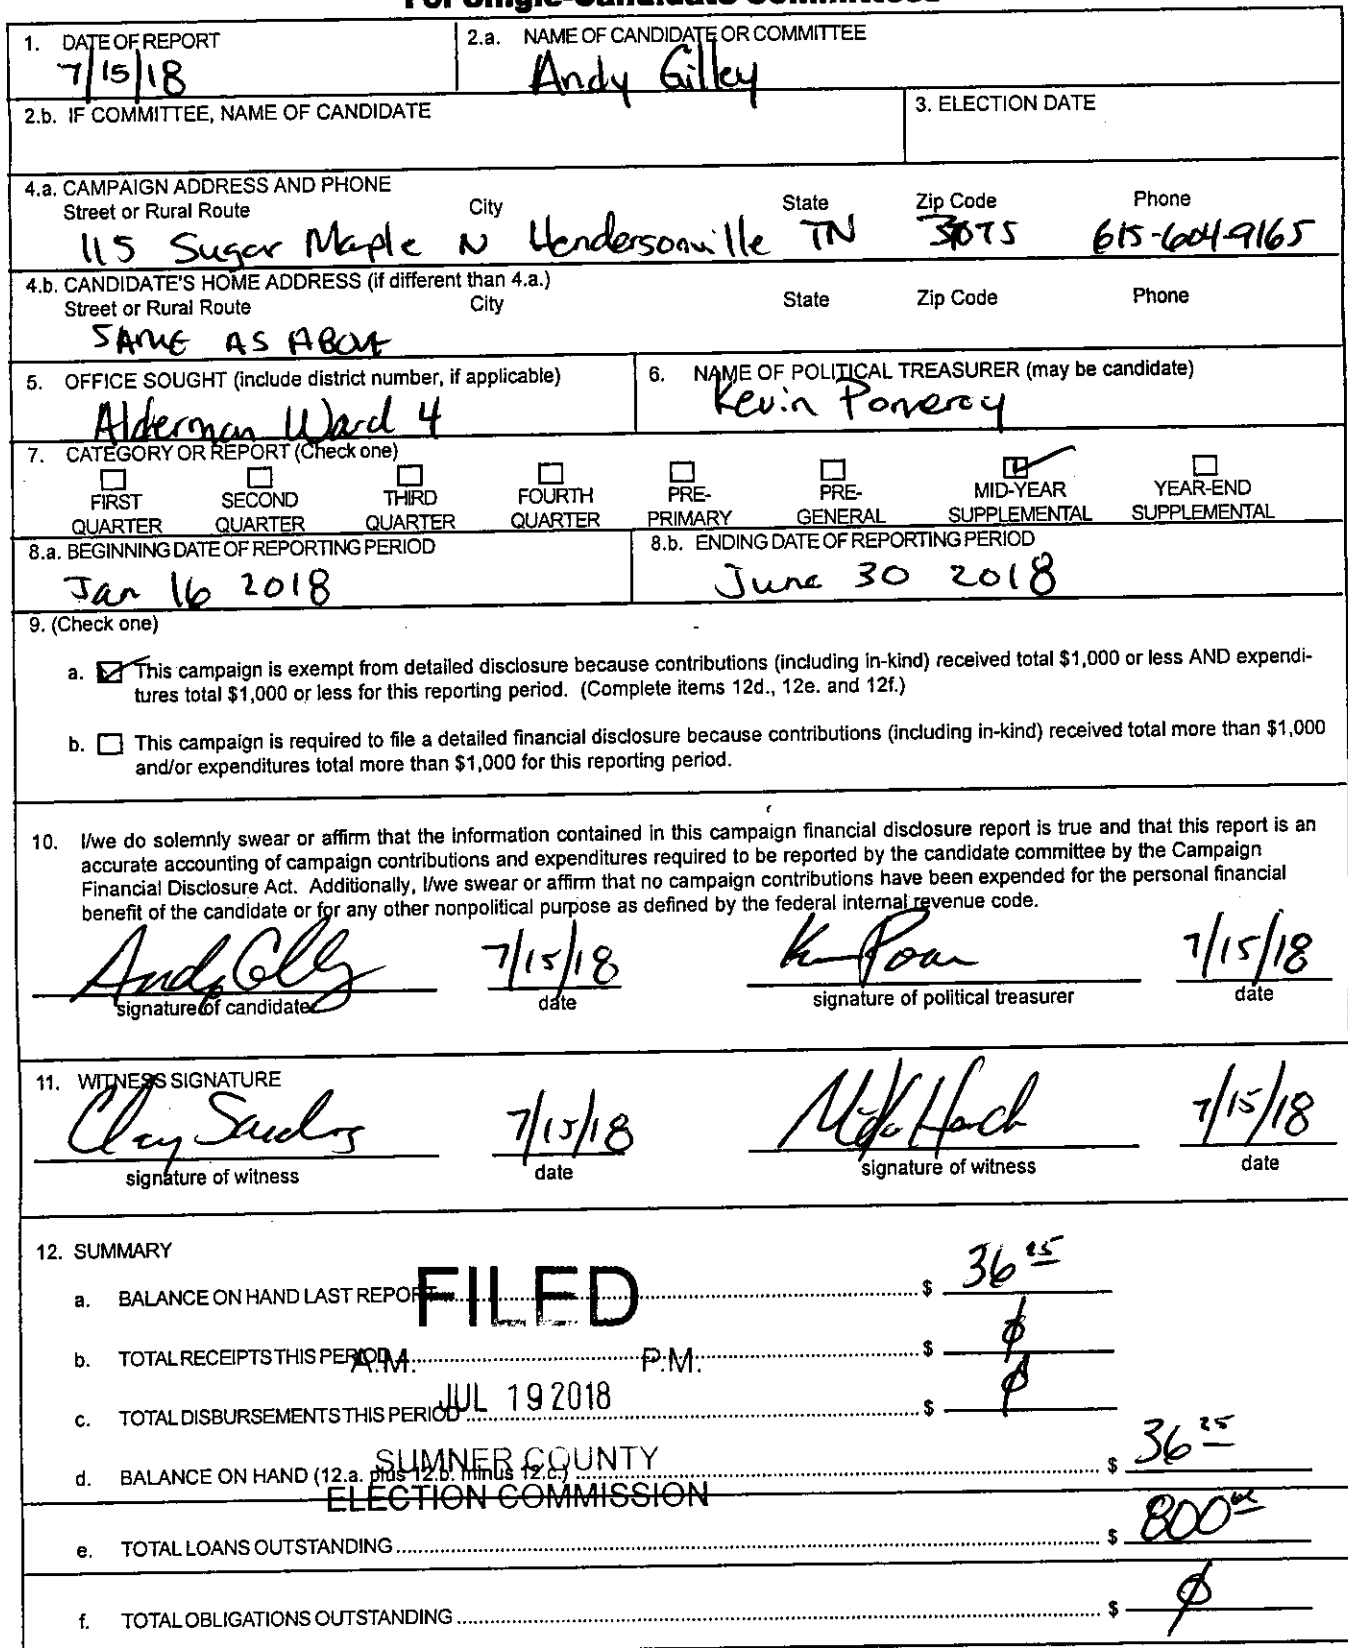 For Single-Candidate Committees
1. DATE OF REPORT
7/15/18
2.a. NAME OF CANDIDATE OR COMMITTEE
Andy Gilley
2.b. IF COMMITTEE, NAME OF CANDIDATE
3. ELECTION DATE
4.a. CAMPAIGN ADDRESS AND PHONE
Street or Rural Route City State Zip Code Phone
115 Sugar Maple N Hendersonville TN 3075 615-604-9165
4.b. CANDIDATE'S HOME ADDRESS (if different than 4.a.)
Street or Rural Route City State Zip Code Phone
SAME AS ABOVE
5. OFFICE SOUGHT (include district number, if applicable)
Alderman Ward 4
6. NAME OF POLITICAL TREASURER (may be candidate)
Kevin Pomeroy
7. CATEGORY OR REPORT (Check one)
FIRST QUARTER
SECOND QUARTER
THIRD QUARTER
FOURTH QUARTER
PRE-PRIMARY
PRE-GENERAL
MID-YEAR SUPPLEMENTAL
YEAR-END SUPPLEMENTAL
8.a. BEGINNING DATE OF REPORTING PERIOD
Jan 16 2018
8.b. ENDING DATE OF REPORTING PERIOD
June 30 2018
9. (Check one)
a. This campaign is exempt from detailed disclosure because contributions (including in-kind) received total $1,000 or less AND expendi-
tures total $1,000 or less for this reporting period. (Complete items 12d., 12e. and 12f.)
b. This campaign is required to file a detailed financial disclosure because contributions (including in-kind) received total more than $1,000
and/or expenditures total more than $1,000 for this reporting period.
10. I/we do solemnly swear or affirm that the information contained in this campaign financial disclosure report is true and that this report is an
accurate accounting of campaign contributions and expenditures required to be reported by the candidate committee by the Campaign
Financial Disclosure Act. Additionally, I/we swear or affirm that no campaign contributions have been expended for the personal financial
benefit of the candidate or for any other nonpolitical purpose as defined by the federal internal revenue code.
7/15/18 7/15/18
signature of candidate date signature of political treasurer date
11. WITNESS SIGNATURE
7/15/18 7/15/18
signature of witness date signature of witness date
12. SUMMARY
a. BALANCE ON HAND LAST REPORT $ 36 25
FILED
b. TOTAL RECEIPTS THIS PERIOD $ ø
A.M. P.M.
c. TOTAL DISBURSEMENTS THIS PERIOD $ ø
JUL 19 2018
d. BALANCE ON HAND (12.a. plus 12.b. minus 12.c.) $ 36 25
SUMNER COUNTY
ELECTION COMMISSION
e. TOTAL LOANS OUTSTANDING $ 800 00
f. TOTAL OBLIGATIONS OUTSTANDING $ ø